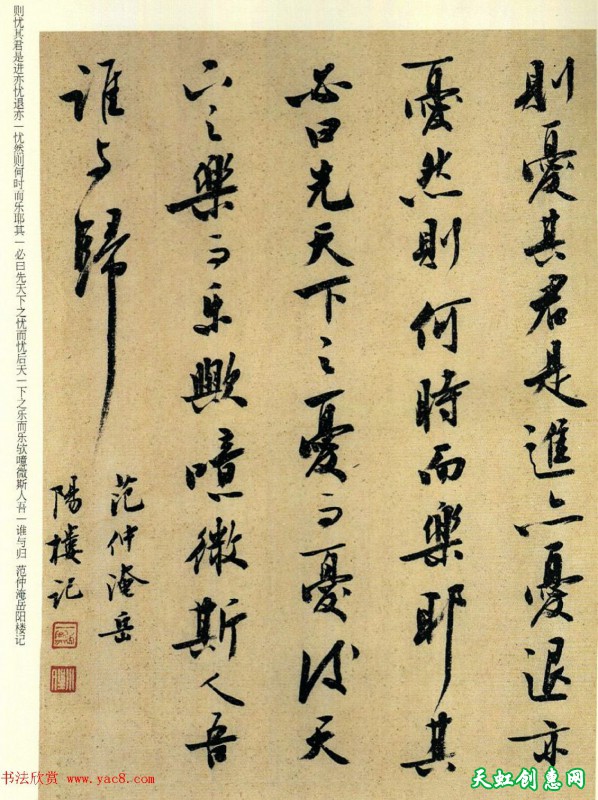 則憂其君是進亦憂退亦
憂然則何時而樂耶其
必曰先天下之憂而憂後天
下之樂而乐歟噫微斯人吾
誰与歸
范仲淹岳
陽樓记
则忧其君是进亦忧退亦一忧然则何时而乐耶其一必曰先天下之忧而忧后天一下之乐而乐欤噫微斯人吾一谁与归 范仲淹岳阳楼记
书法欣赏 www.yac8.com
天虹创惠网